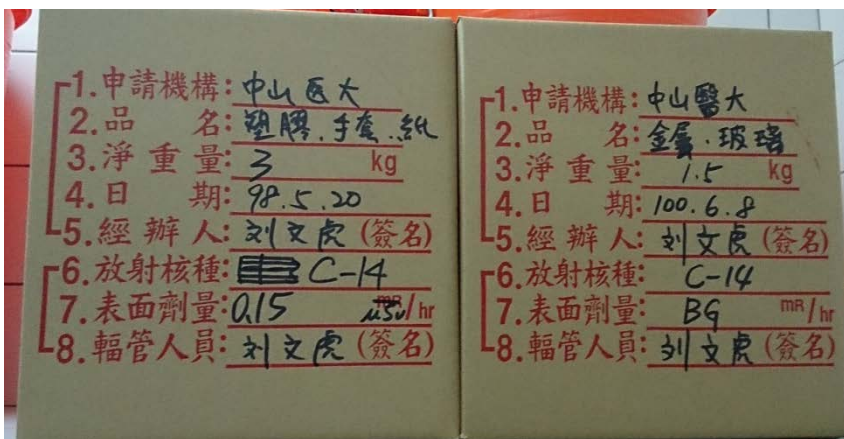 1.申請機構:中山医大
2.品 名:塑膠.手套.紙
3.淨重量:3 kg
4.日 期:98.5.20
5.經辦人:刘文虎(簽名)
6.放射核種:C-14
7.表面劑量:0.15 μSv/hr
8.輻管人員:刘文虎(簽名)
1.申請機構:中山醫大
2.品 名:金屬.玻璃
3.淨重量:1.5 kg
4.日 期:100.6.8
5.經辦人:刘文虎(簽名)
6.放射核種:C-14
7.表面劑量:BG mR/hr
8.輻管人員:刘文虎(簽名)